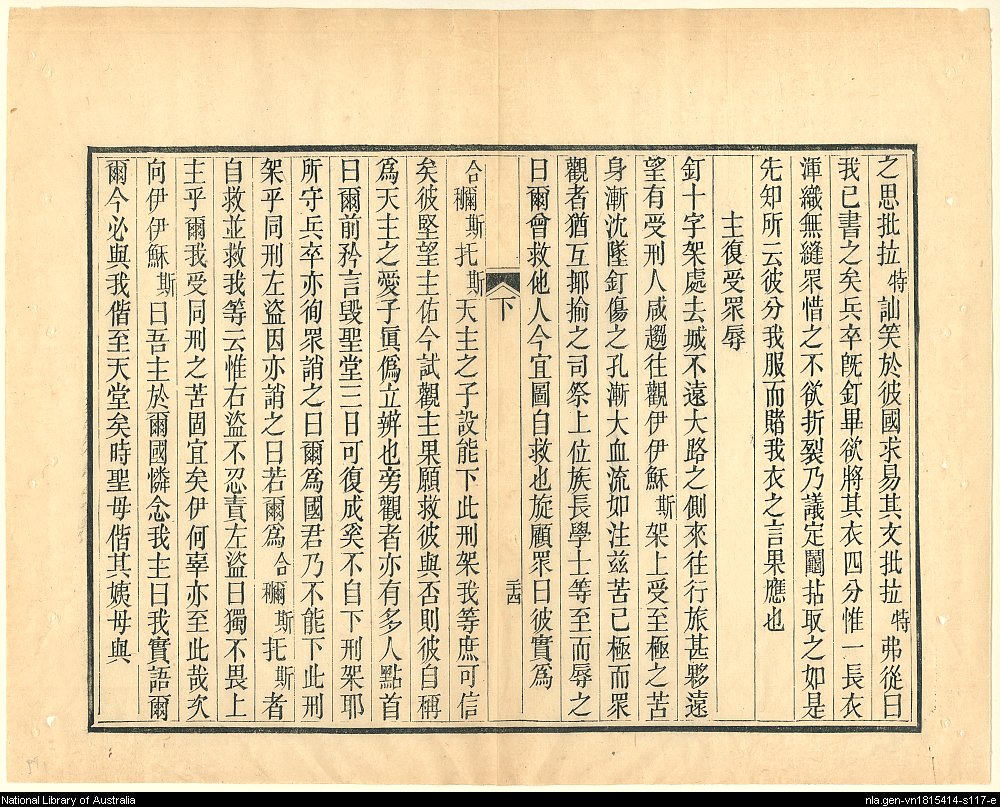 之思批拉特訕笑於彼國求易其文批拉特弗從曰
我已書之矣兵卒旣釘畢欲將其衣四分惟一長衣
渾織無縫眾惜之不欲折裂乃議定鬮拈取之如是
先知所云彼分我服而賭我衣之言果應也
主復受眾辱
釘十字架處去城不遠大路之側來往行旅甚夥遠
望有受刑人咸趨往觀伊伊穌斯架上受至極之苦
身漸沈墜釘傷之孔漸大血流如注兹苦已極而眾
觀者猶互揶揄之司祭上位族長學士等至而辱之
曰爾曾救他人今宜圖自救也旋顧眾曰彼實爲
下
三十四
合穪斯托斯天主之子設能下此刑架我等庶可信
矣彼堅望主佑今試觀主果願救彼與否則彼自稱
爲天主之愛子眞僞立辨也旁觀者亦有多人點首
曰爾前矜言毀聖堂三日可復成奚不自下刑架耶
所守兵卒亦徇眾誚之曰爾爲國君乃不能下此刑
架乎同刑左盜因亦誚之曰若爾爲合穪斯托斯者
自救並救我等云惟右盜不忍責左盜曰獨不畏上
主乎爾我受同刑之苦固宜矣伊何辜亦至此哉次
向伊伊穌斯曰吾主於爾國憐念我主曰我實語爾
爾今必與我偕至天堂矣時聖母偕其姨母與
National Library of Australia
nla.gen-vn1815414-s117-e